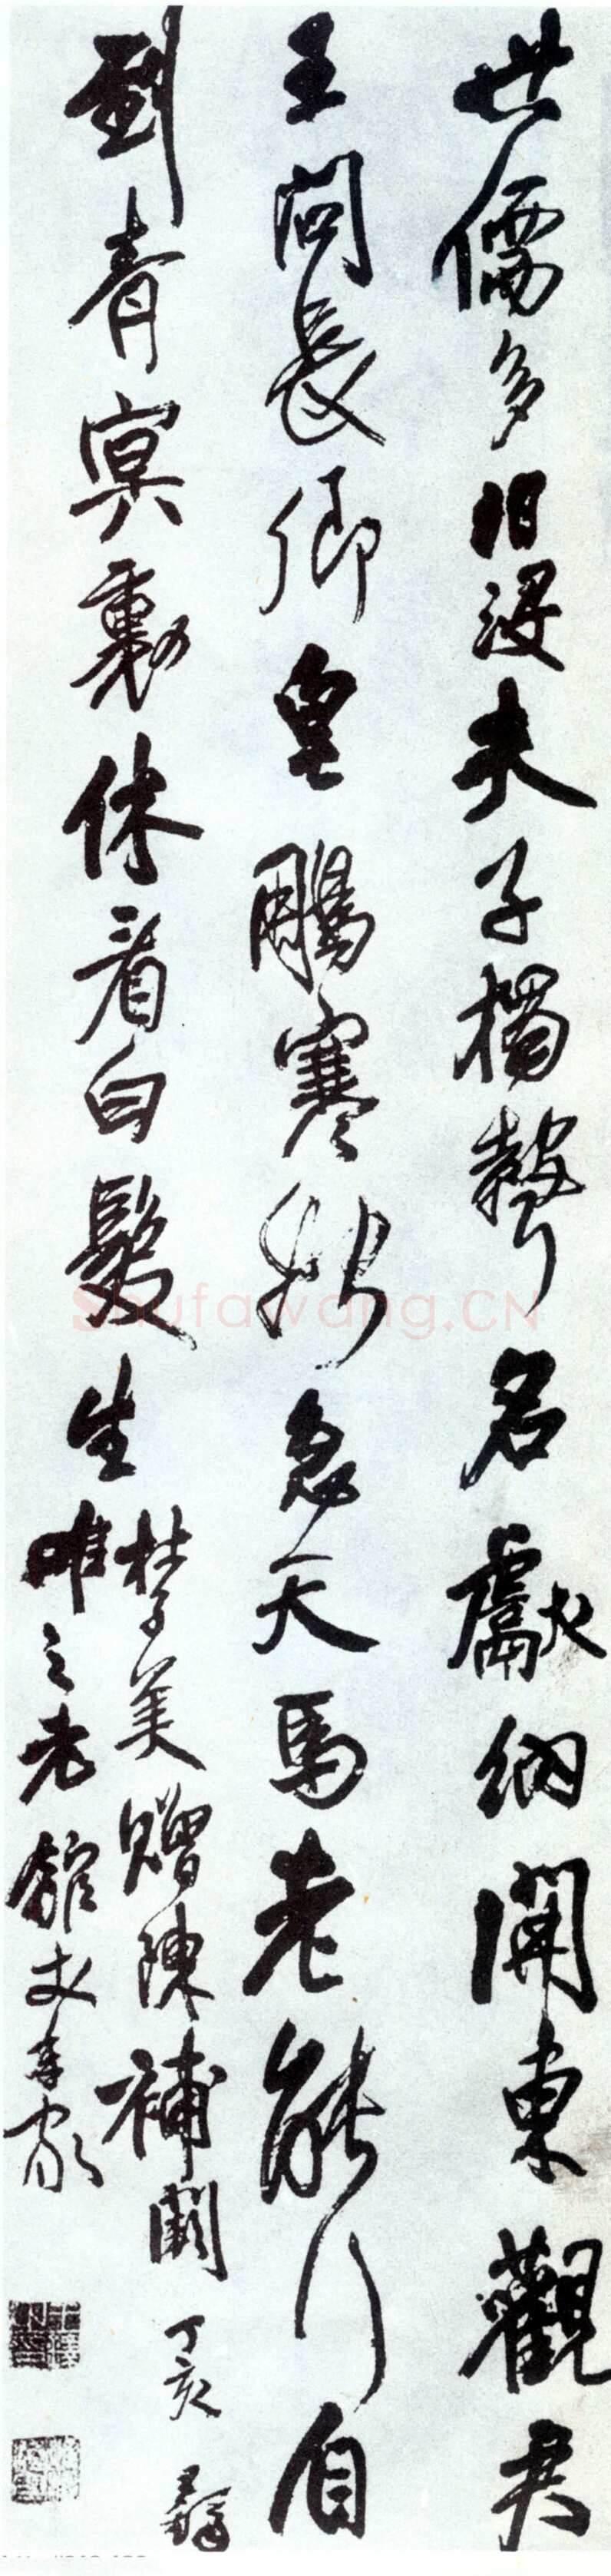 世儒多汩没夫子獨聲名獻納開東觀君
王問長卿皂鵰寒始急天馬老能行自
到青冥裏休看白髮生
杜子美贈陳補闕 丁亥
唯之老舘丈
Shufawang.CN